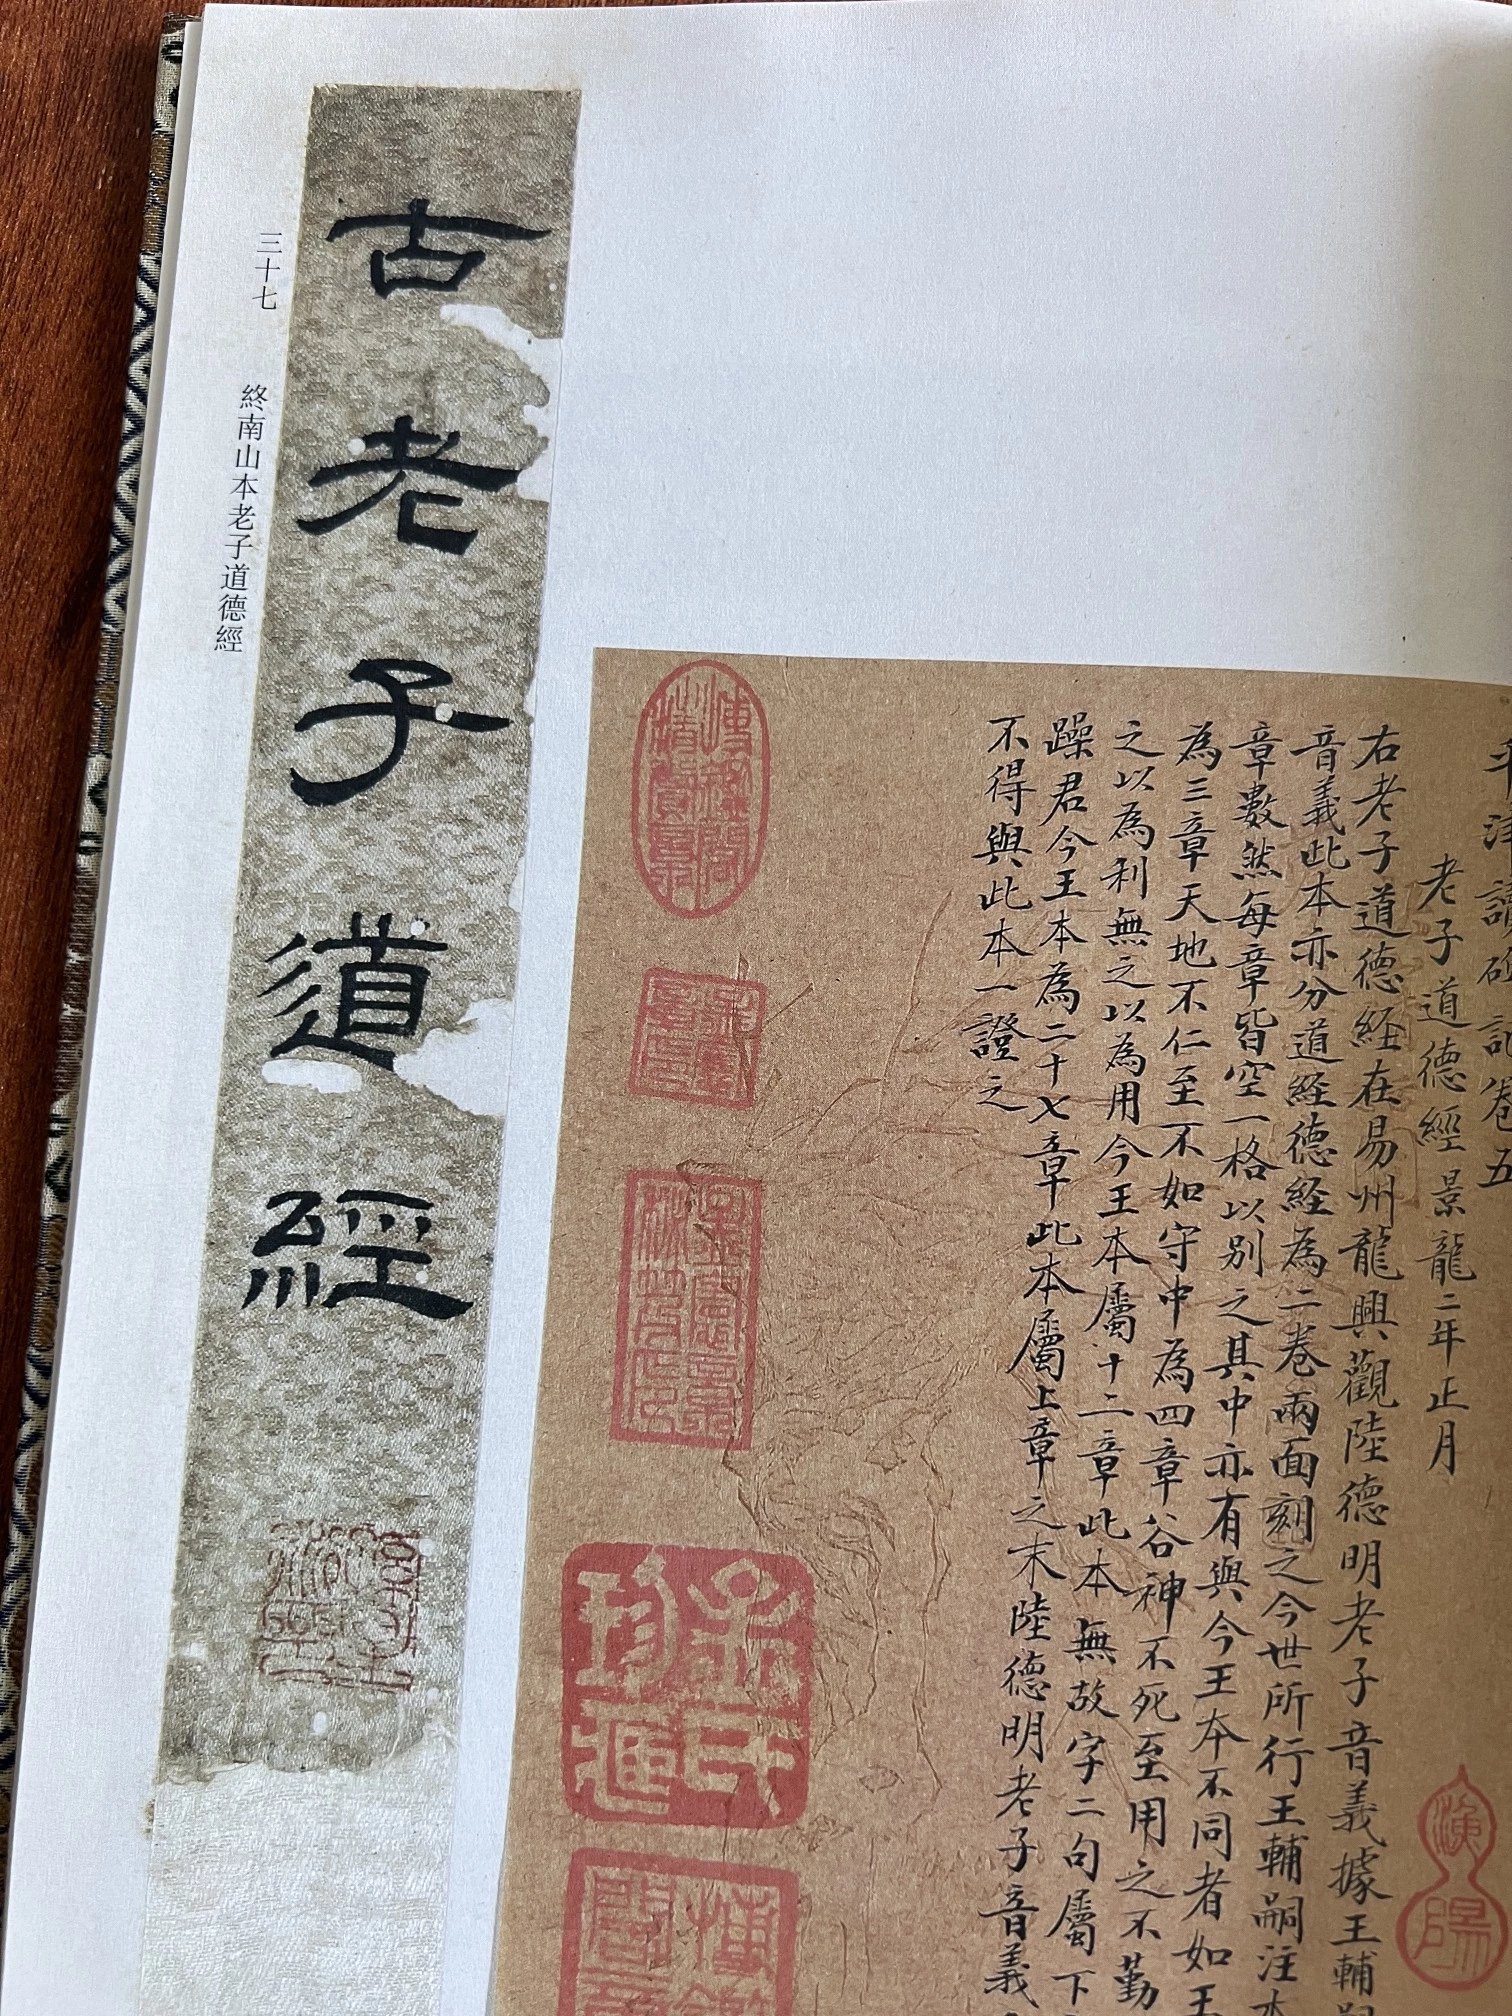 平津讀碑記卷五
老子道德經景龍二年正月
右老子道德経在易州龍興觀陸德明老子音義據王輔
音義此本亦分道経德経為二卷兩面刻之今世所行王輔嗣注本
章數然每章皆空一格以別之其中亦有與今王本不同者如王
為三章天地不仁至不如守中為四章谷神不死至用之不勤
之以為利無之以為用今王本屬十二章此本無故字二句屬下
躁君今王本為二十七章此本屬上章之末陸德明老子音義
不得與此本一證之
古老子道經
三十七 終南山本老子道德經